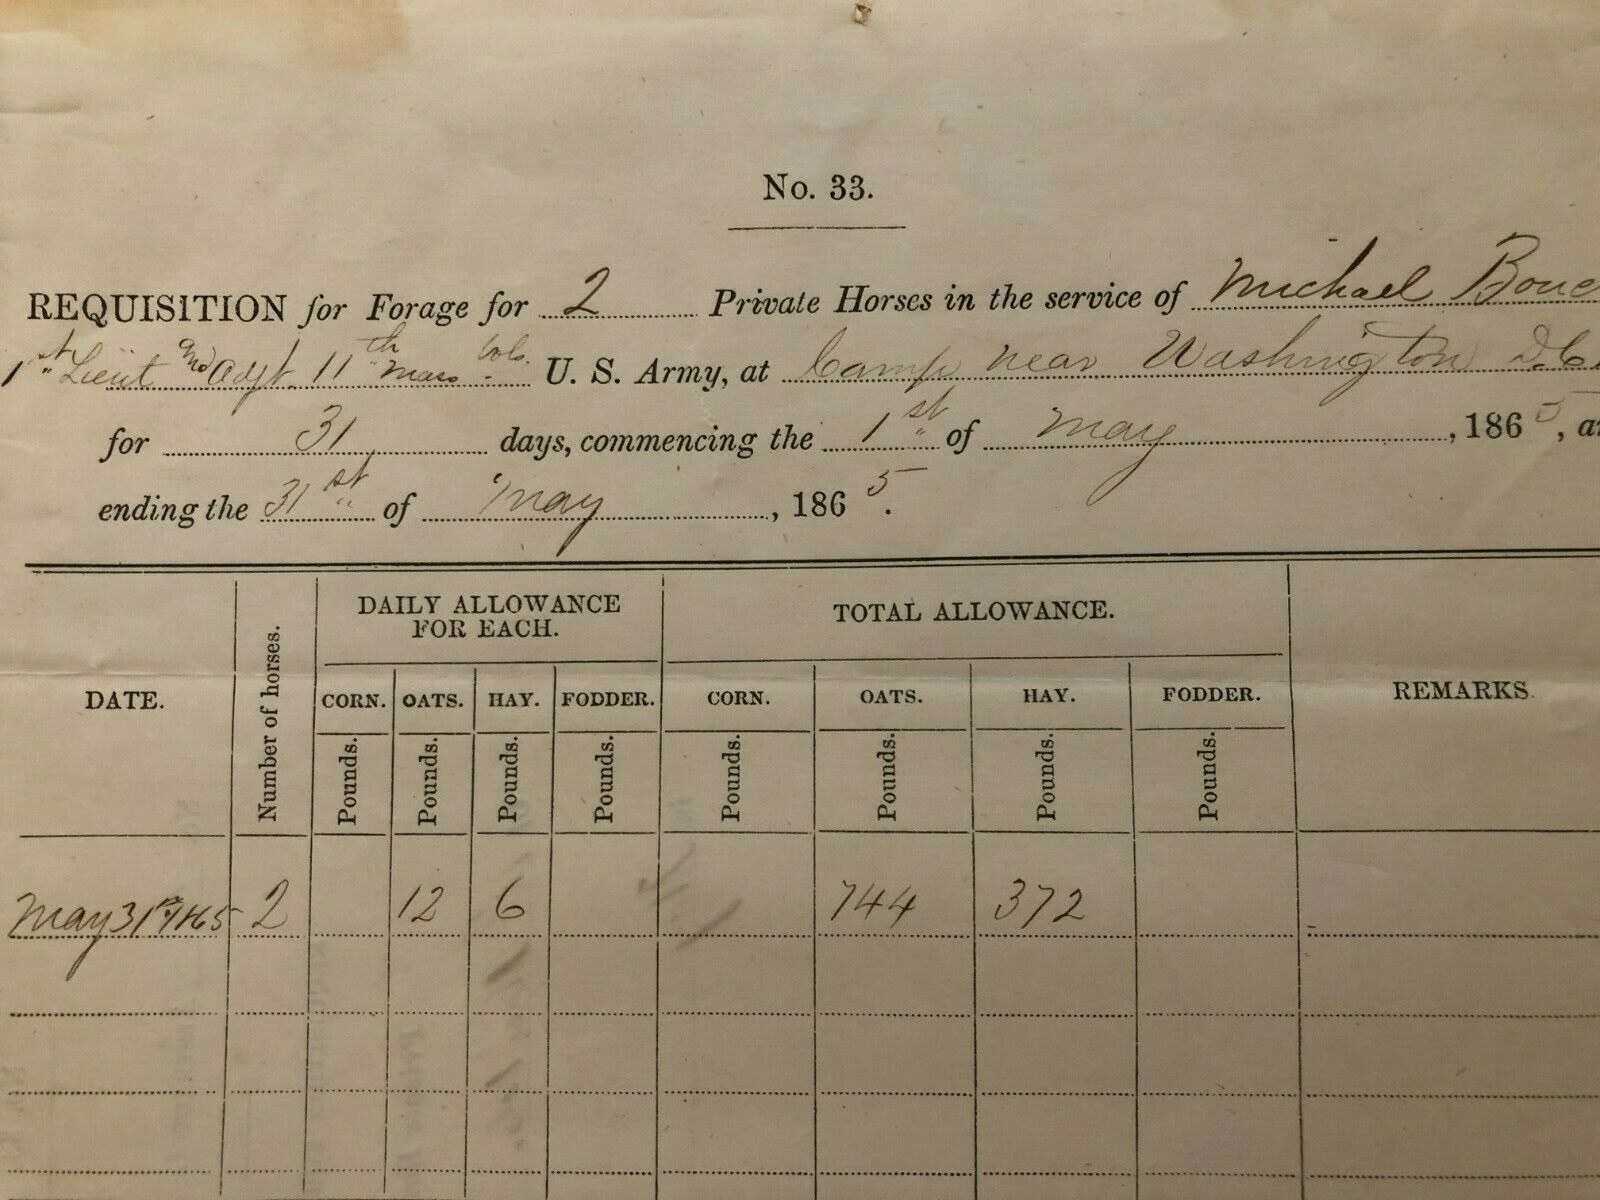 No. 33.
REQUISITION for Forage for 2 Private Horses in the service of Michael
1st Lieut and Adjt. 11th Mass Vols. U. S. Army, at Camp near Washington D.C.
for 31 days, commencing the 1st of May, 1865, a
ending the 31st of May, 1865.
DAILY ALLOWANCE FOR EACH. TOTAL ALLOWANCE.
DATE. Number of horses. CORN. OATS. HAY. FODDER. CORN. OATS. HAY. FODDER. REMARKS.
Pounds. Pounds. Pounds. Pounds. Pounds. Pounds. Pounds. Pounds.
May 31st 1865 2 12 6 744 372